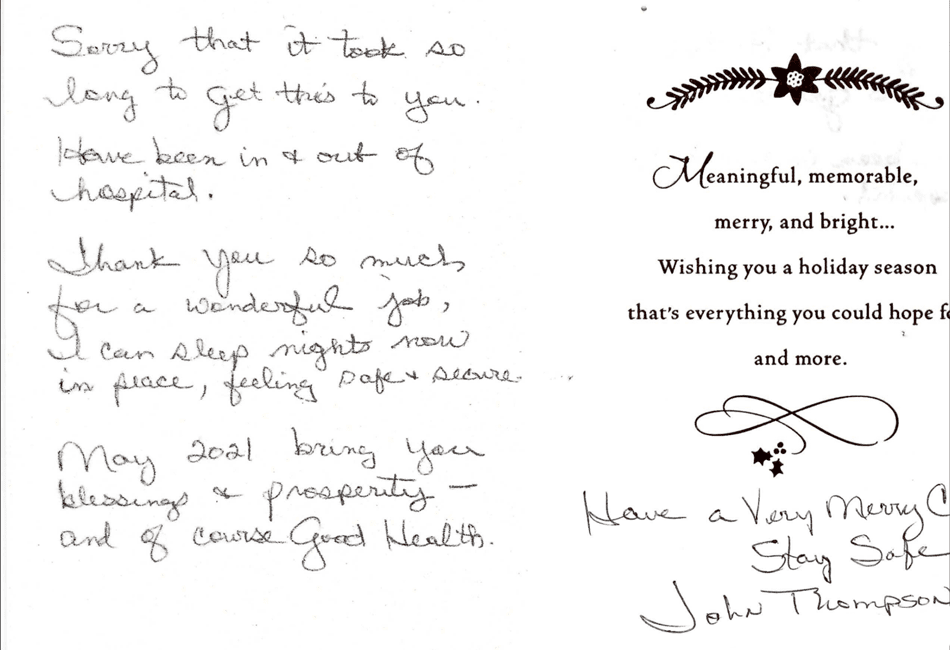 Sorry that it took so
long to get this to you.
Have been in & out of
hospital.
Thank you so much
for a wonderful job,
I can sleep nights now
in peace, feeling safe & secure.
May 2021 bring you
blessings & prosperity —
and of course Good Health.
Meaningful, memorable,
merry, and bright...
Wishing you a holiday season
that's everything you could hope f
and more.
Have a Very Merry C
Stay Safe
John Thompson